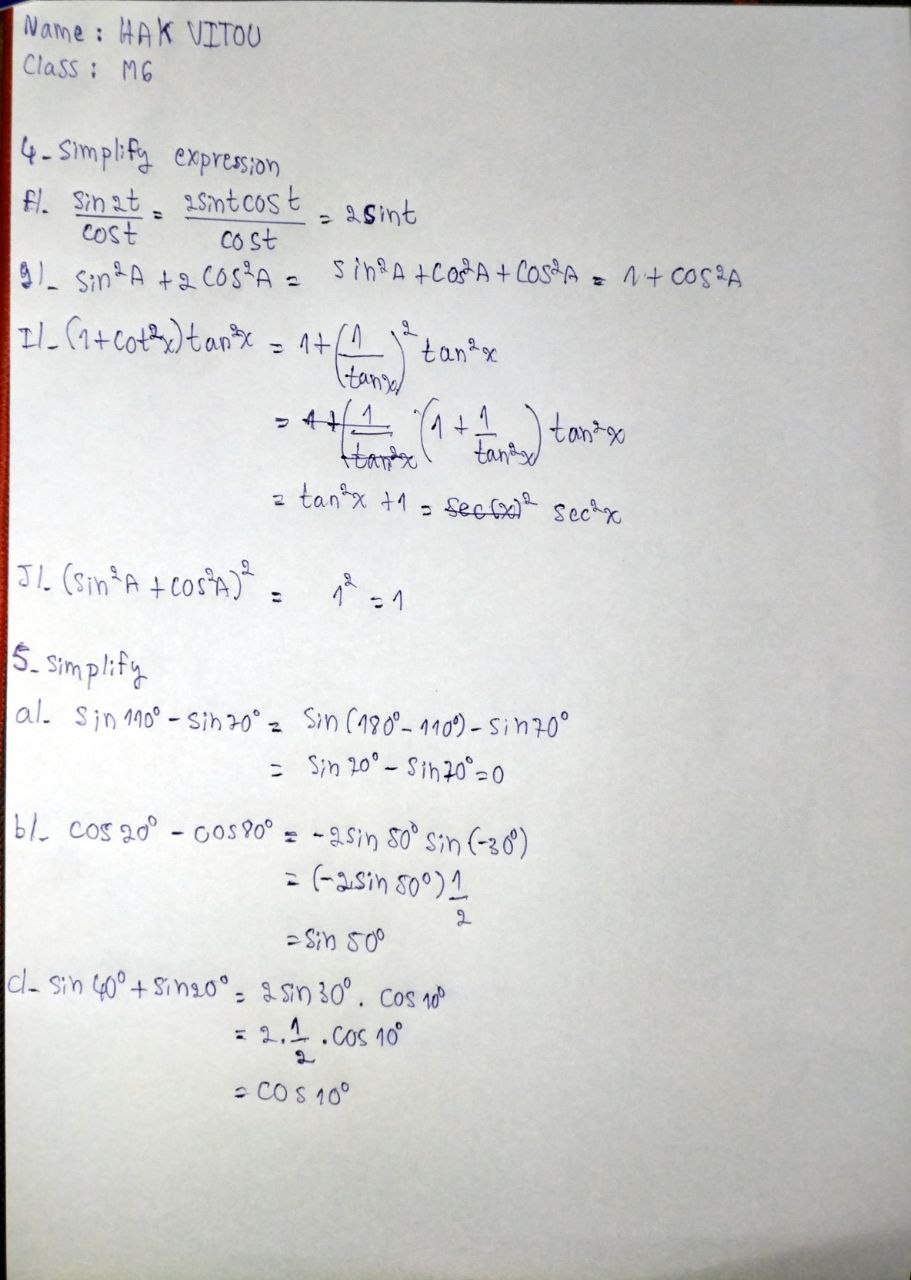 Name : HAK VITOU
Class : M6
4- Simplify expression
f/. sin2t/cost = 2sintcost/cost = 2sint
g/- sin²A + 2cos²A = sin²A + cos²A + cos²A = 1 + cos²A
I/- (1+cot²x)tan²x = 1+(1/tanx)² tan²x
= 1+(1/tan²x (1 + 1/tan²x) tan²x
= tan²x + 1 = sec(x)² sec²x
J/- (sin²A + cos²A)² = 1² = 1
5- Simplify
a/- sin110° - sin70° = sin(180° - 110°) - sin70°
= sin70° - sin70° = 0
b/- cos20° - cos80° = -2sin50° sin(-30°)
= (-2sin50°)1/2
= sin50°
c/- sin40° + sin20° = 2sin30° . cos10°
= 2.1/2 .cos10°
= cos10°